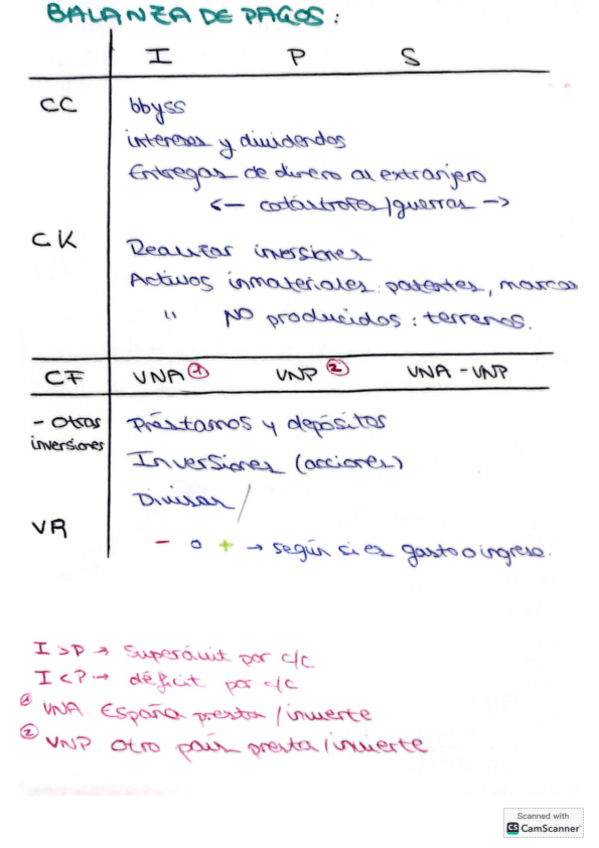 BALANZA DE PAGOS:
I P S
CC bbyss
intereses y dividendos
Entregas de dinero al extranjero
<— catástrofes/guerras —>
CK Realizar inversiones
Activos inmateriales: patentes, marcas
" NO producidos: terrenos.
CF VNA ① VNP ② VNA - VNP
- Otras inversiones Préstamos y depósitos
Inversiones (acciones)
Divisas /
VR - o + → según si es gasto o ingreso.
I > P → Superávit por c/c
I < P → déficit por c/c
① VNA España presta / invierte
② VNP: Otro país presta / invierte
Scanned with
CS CamScanner